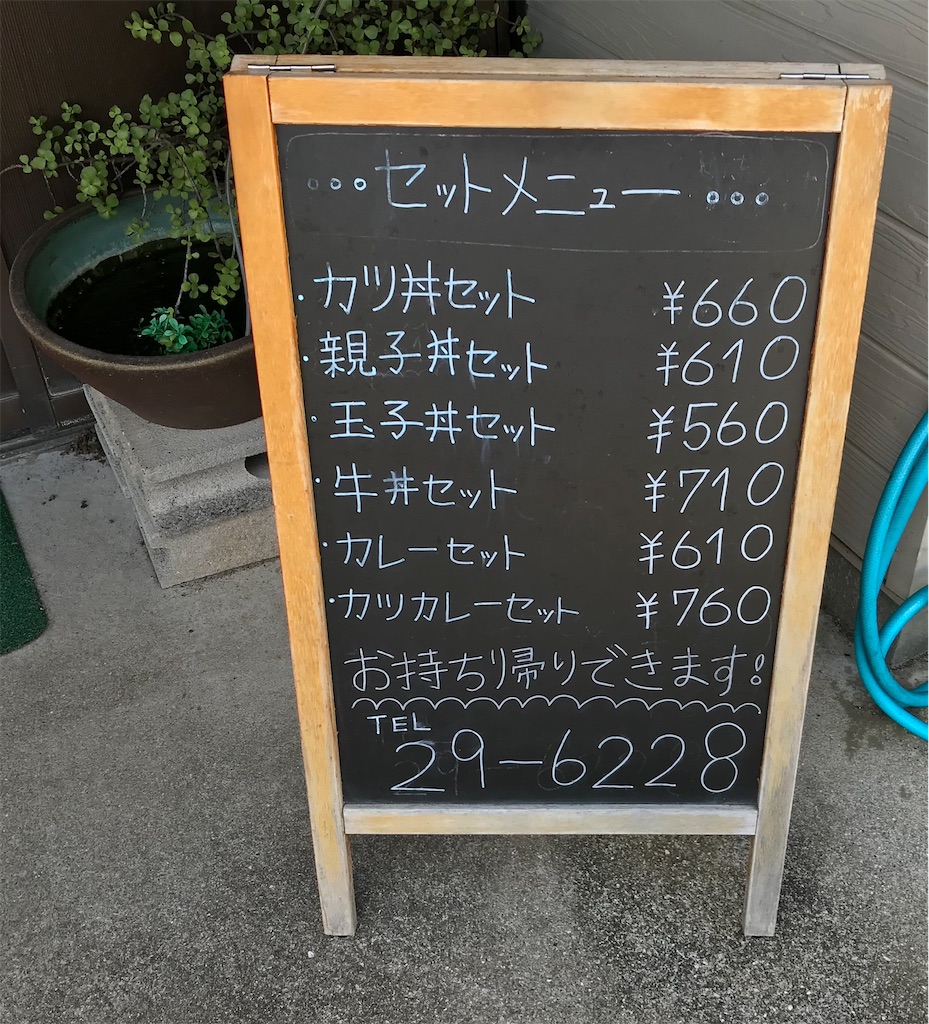 ...セットメニュー...
・カツ丼セット ¥660
・親子丼セット ¥610
・玉子丼セット ¥560
・牛丼セット ¥710
・カレーセット ¥610
・カツカレーセット ¥760
お持ち帰りできます!
TEL
29-6228